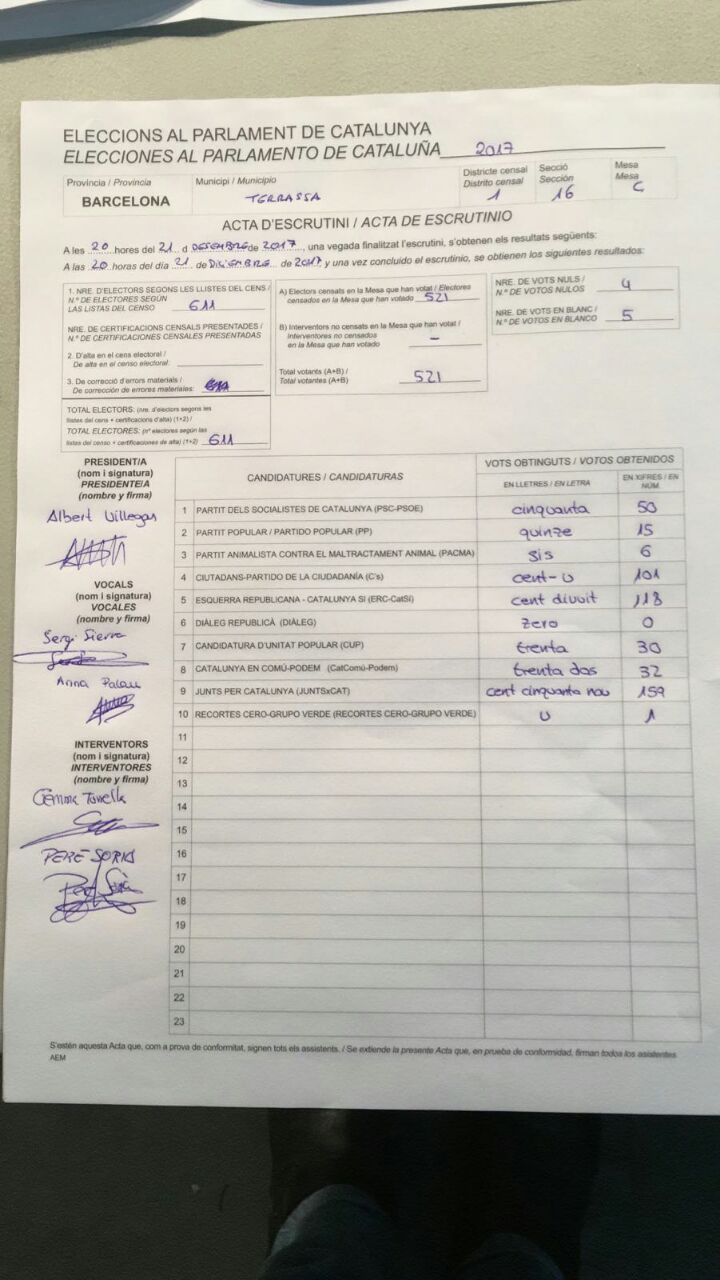 ELECCIONS AL PARLAMENT DE CATALUNYA
ELECCIONES AL PARLAMENTO DE CATALUÑA 2017
Provincia / Provincia
BARCELONA
Municipi / Municipio
TERRASSA
Districte censal
Distrito censal
1
Secció
Sección
16
Mesa
Mesa
C
ACTA D'ESCRUTINI / ACTA DE ESCRUTINIO
A les 20 hores del 21 d DESEMBRE de 2017, una vegada finalitzat l'escrutini, s'obtenen els resultats següents:
A las 20 horas del día 21 de DICIEMBRE de 2017 y una vez concluido el escrutinio, se obtienen los siguientes resultados:
1. NRE. D'ELECTORS SEGONS LES LLISTES DEL CENS /
N.º DE ELECTORES SEGÚN
LAS LISTAS DEL CENSO 611
NRE. DE CERTIFICACIONS CENSALS PRESENTADES /
N.º DE CERTIFICACIONES CENSALES PRESENTADAS
2. D'alta en el cens electoral /
De alta en el censo electoral:
3. De correcció d'errors materials /
De corrección de errores materiales:
TOTAL ELECTORS: (nre. d'electors segons les
llistes del cens + certificacions d'alta) (1+2) /
TOTAL ELECTORES: (nº electores según las
listas del censo + certificaciones de alta) (1+2) 611
A) Electors censats en la Mesa que han votat / Electores
censados en la Mesa que han votado 521
B) Interventors no censats en la Mesa que han votat /
Interventores no censados
en la Mesa que han votado -
Total votants (A+B) /
Total votantes (A+B) 521
NRE. DE VOTS NULS /
N.º DE VOTOS NULOS 4
NRE. DE VOTS EN BLANC /
N.º DE VOTOS EN BLANCO 5
PRESIDENT/A
(nom i signatura)
PRESIDENTE/A
(nombre y firma)
Albert Villegas
VOCALS
(nom i signatura)
VOCALES
(nombre y firma)
Sergi Sierra
Anna Palau
INTERVENTORS
(nom i signatura)
INTERVENTORES
(nombre y firma)
Gemma
PERE SORIA
Pere Soria
CANDIDATURES / CANDIDATURAS
VOTS OBTINGUTS / VOTOS OBTENIDOS
EN LLETRES / EN LETRA
EN XIFRES / EN NÚM.
1 PARTIT DELS SOCIALISTES DE CATALUNYA (PSC-PSOE) cinquanta 50
2 PARTIT POPULAR / PARTIDO POPULAR (PP) quinze 15
3 PARTIT ANIMALISTA CONTRA EL MALTRACTAMENT ANIMAL (PACMA) sis 6
4 CIUTADANS-PARTIDO DE LA CIUDADANÍA (C's) cent-u 101
5 ESQUERRA REPUBLICANA - CATALUNYA SÍ (ERC-CatSí) cent divuit 118
6 DIÀLEG REPUBLICÀ (DIÀLEG) zero 0
7 CANDIDATURA D'UNITAT POPULAR (CUP) trenta 30
8 CATALUNYA EN COMÚ-PODEM (CatComú-Podem) trenta dos 32
9 JUNTS PER CATALUNYA (JUNTSxCAT) cent cinquanta nou 159
10 RECORTES CERO-GRUPO VERDE (RECORTES CERO-GRUPO VERDE) u 1
11
12
13
14
15
16
17
18
19
20
21
22
23
S'estén aquesta Acta que, com a prova de conformitat, signen tots els assistents. / Se extiende la presente Acta que, en prueba de conformidad, firman todos los asistentes
AEM